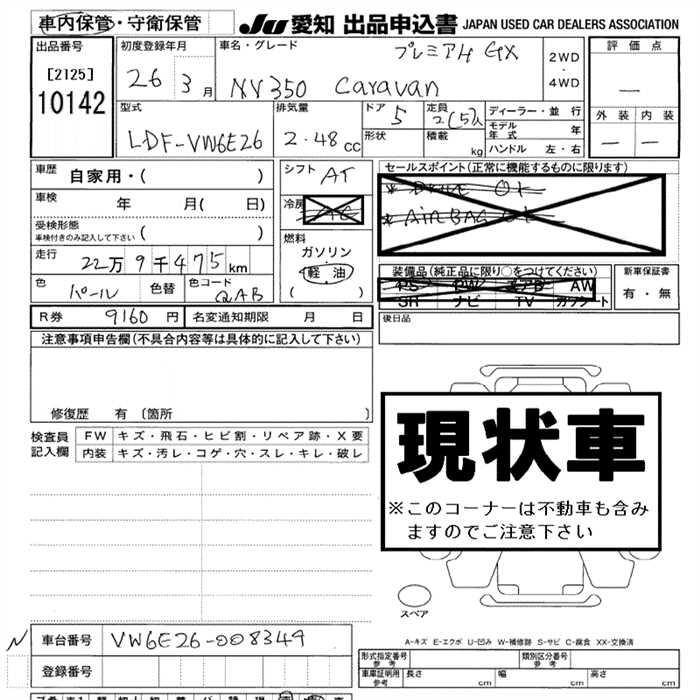 車内保管・守衛保管 JU 愛知 出品申込書 JAPAN USED CAR DEALERS ASSOCIATION
出品番号
[2125]
10142
初度登録年月
26 3月
車名・グレード
プレミアム GX
NV350 Caravan
2WD
・
4WD
評価点
—
外装 内装
— —
型式
LDF-VW6E26
排気量
2.48 cc
ドア 5
形状
定員 2(5)人
積載 kg
ディーラー・並行
モデル年式 年
ハンドル 左・右
車歴 自家用・( )
車検 年 月( 日)
受検形態
車検付きのみ記入して下さい ( )
走行 22万9千475km
色 パール 色替 色コード QAB
シフト AT
冷房 AC
燃料
ガソリン
軽油
( )
セールスポイント(正常に機能するものに限ります)
AIRBAG
装備品(純正品に限り○をつけてください)
PS PW エアB AW
SR ナビ TV カワシート
新車保証書
有・無
R券 9160円 名変通知期限 月 日
後日品
注意事項申告欄(不具合内容等は具体的に記入して下さい)
修復歴 有 〔箇所 〕
検査員
記入欄
FW キズ・飛石・ヒビ割・リペア跡・X要
内装 キズ・汚レ・コゲ・穴・スレ・キレ・破レ
現状車
※このコーナーは不動車も含み
ますのでご注意下さい
スペア
A-キズ E-エクボ U-凹み W-補修跡 S-サビ C-腐食 XX-交換済
N 車台番号 VW6E26-008349
登録番号
形式指定番号
参考
類別区分番号
参考
車庫証明用
参考
長さ cm 幅 cm 高さ cm